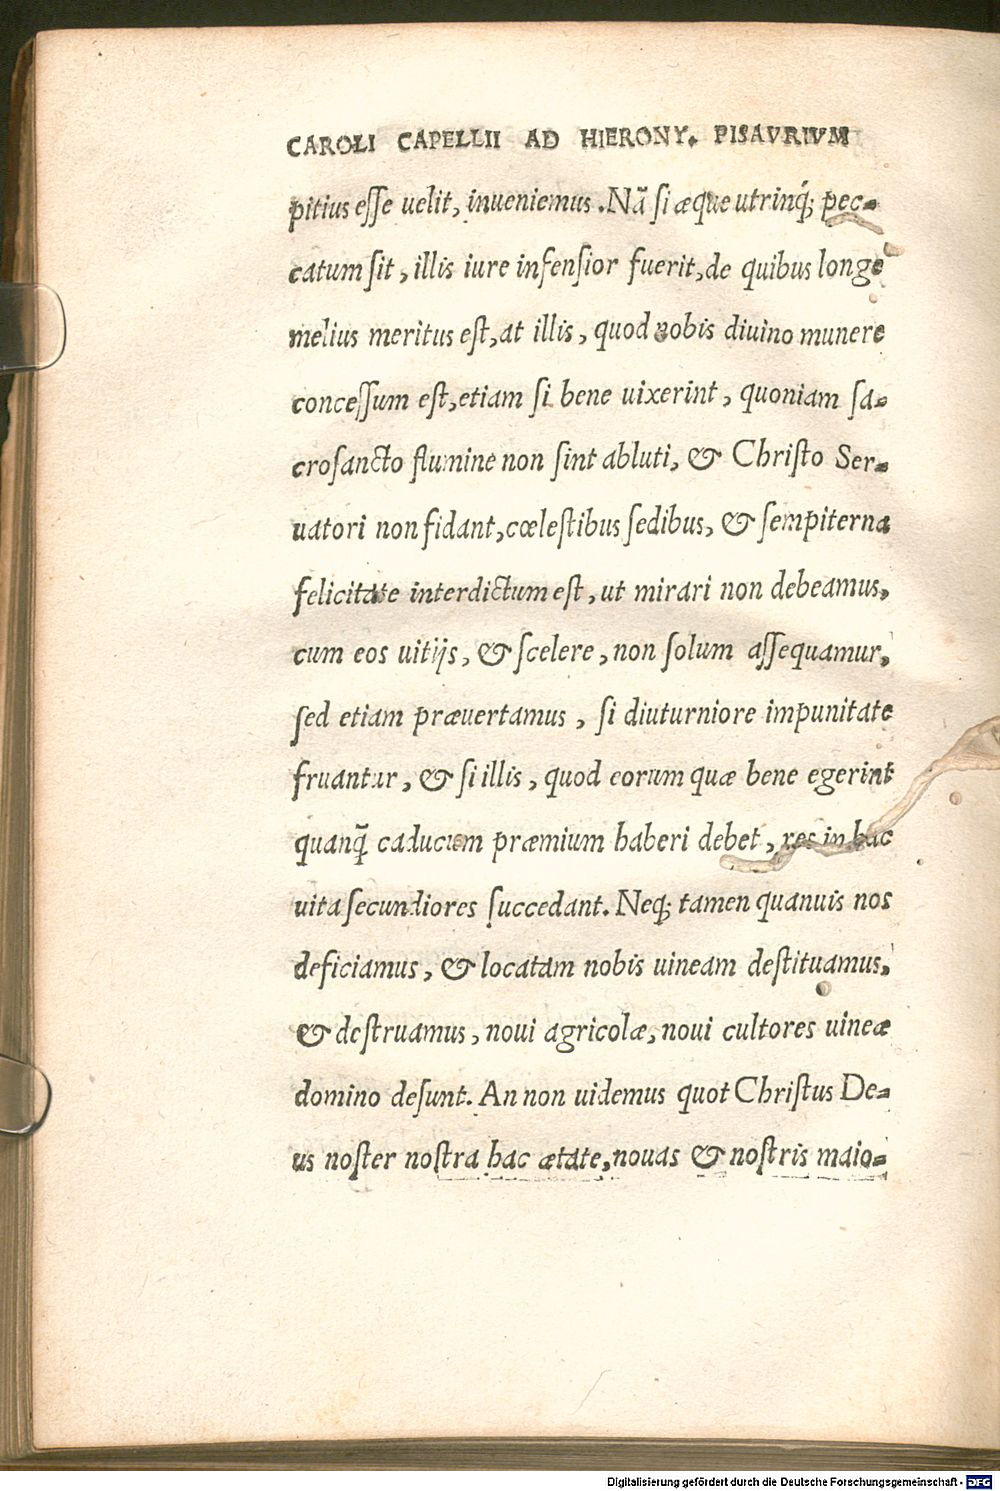 CAROLI CAPELLII AD HIERONY. PISAVRIVM
pitius eſſe uelit, inueniemus. Nã ſi æque utrinq́; pec-
catum ſit, illis iure infenſior fuerit, de quibus longe
melius meritus eſt, at illis, quod nobis diuino munere
conceſſum eſt, etiam ſi bene uixerint, quoniam ſa-
croſancto flumine non ſint abluti, & Chriſto Ser-
uatori non fidant, cœleſtibus ſedibus, & ſempiterna
felicitate interdictum eſt, ut mirari non debeamus,
cum eos uitijs, & ſcelere, non ſolum aſſequamur,
ſed etiam præuertamus, ſi diuturniore impunitate
fruantur, & ſi illis, quod eorum quæ bene egerint
quanq̃ caducum præmium haberi debet, res in hac
uita ſecundiores ſuccedant. Neq; tamen quanuis nos
deficiamus, & locatam nobis uineam deſtituamus,
& deſtruamus, noui agricolæ, noui cultores uineæ
domino deſunt. An non uidemus quot Chriſtus De-
us noſter noſtra hac ætate, nouas & noſtris maio-
Digitalisierung gefördert durch die Deutsche Forschungsgemeinschaft - DFG